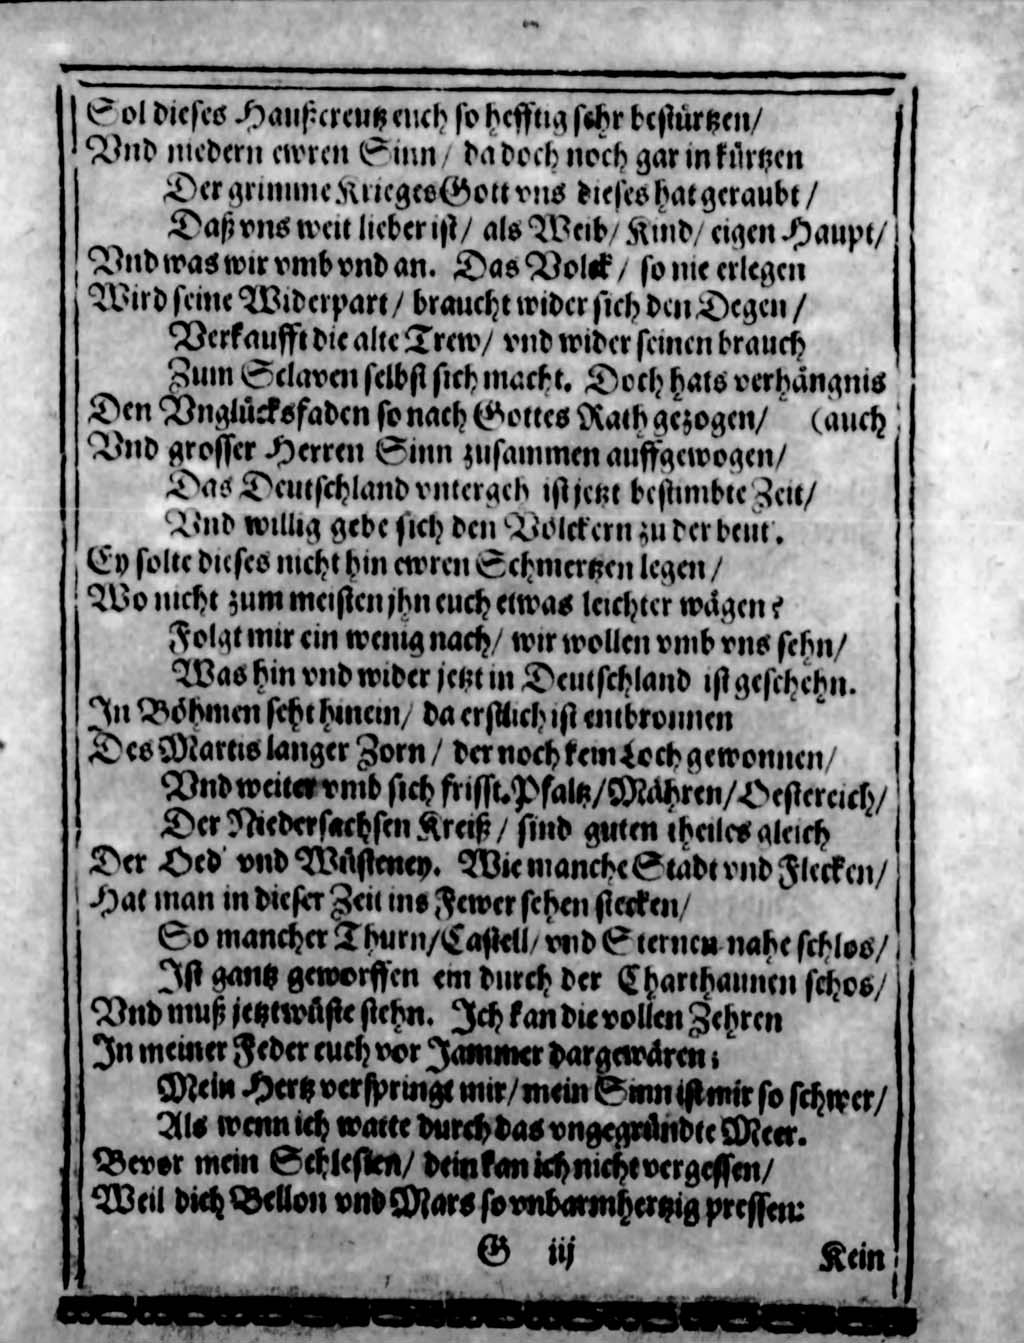 Sol dieses Haußcreutz euch so hefftig sehr bestürtzen/
Vnd niedern ewren Sinn/ da doch noch gar in kürtzen
Der grimme KriegesGott vns dieses hat geraubt/
Daß vns weit lieber ist/ als Weib/ Kind/ eigen Haupt/
Vnd was wir vmb vnd an. Das Volck/ so nie erlegen
Wird seine Widerpart/ braucht wider sich den Degen/
Verkaufft die alte Trew/ vnd wider seinen brauch
Zum Sclaven selbst sich macht. Doch hats verhängnis
Den Vnglücksfaden so nach Gottes Rath gezogen/ (auch
Vnd grosser Herren Sinn zusammen auffgewogen/
Das Deutschland vntergeh ist jetzt bestimbte Zeit/
Vnd willig gebe sich den Völckern zu der beut'.
Ey solte dieses nicht hin ewren Schmertzen legen/
Wo nicht zum meisten jhn euch etwas leichter wägen?
Folgt mir ein wenig nach/ wir wollen vmb vns sehn/
Was hin vnd wider jetzt in Deutschland ist geschehn.
In Böhmen seht hinein/ da erstlich ist entbronnen
Des Martis langer Zorn/ der noch kein Loch gewonnen/
Vnd weiter vmb sich frisst. Pfaltz/ Mähren/ Oestereich/
Der Niedersachsen Kreiß/ sind guten theiles gleich
Der Oed' vnd Wüsteney. Wie manche Stadt vnd Flecken/
Hat man in dieser Zeit ins Fewer sehen stecken/
So mancher Thurn/ Castell/ vnd Sternen nahe schlos/
Ist gantz geworffen ein durch der Charthaunen schos/
Vnd muß jetzt wüste stehn. Ich kan die vollen Zehren
In meiner Feder euch vor Jammer dar gewären;
Mein Hertz verspringt mir/ mein Sinn ist mir so schwer/
Als wenn ich watte durch das vngegründte Meer.
Bevor mein Schlesien/ dein kan ich nicht vergessen/
Weil dich Bellon vnd Mars so vnbarmhertzig pressen:
G iij Kein